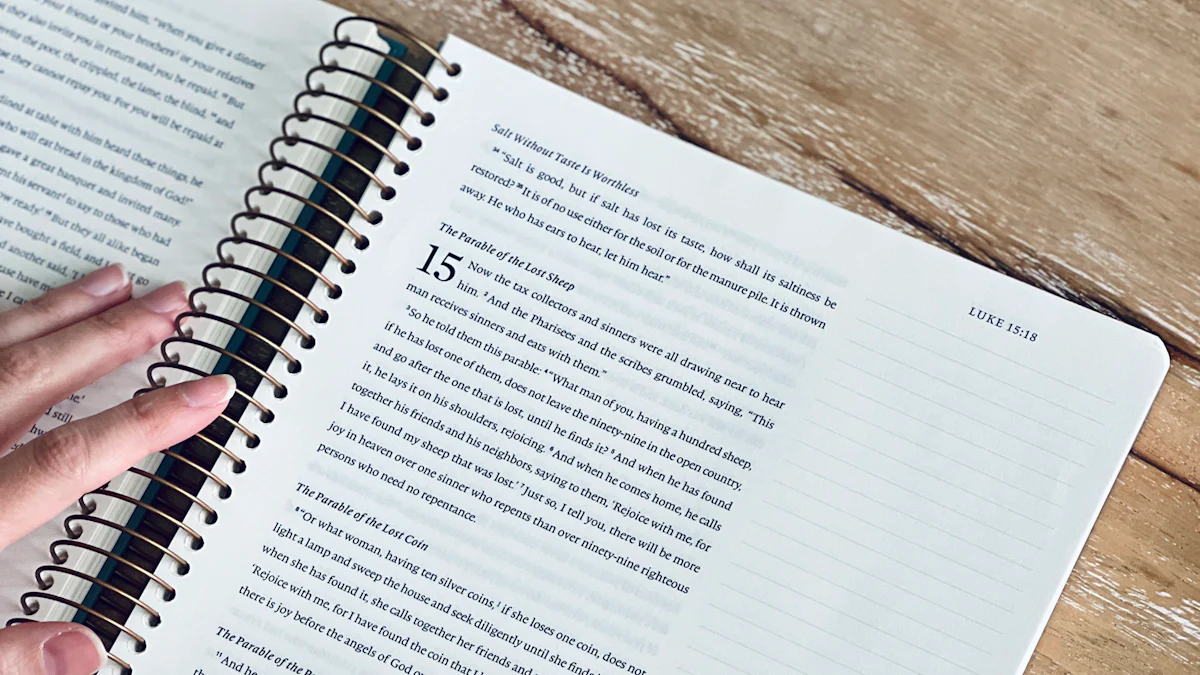 him, "When you give a dinner
your friends or your brothers or your relatives
they also invite you in return and you be repaid. ¹³ But
invite the poor, the crippled, the lame, the blind, ¹⁴ and
they cannot repay you. For you will be repaid at
at table with him heard these things, he
who will eat bread in the kingdom of God!"
gave a great banquet and invited many.
his servant to say to those who had
now ready.' ¹⁸ But they all alike began
have bought a field, and I must go
another said, 'I
have me
I ca
he.'
still
Salt Without Taste Is Worthless
³⁴ "Salt is good, but if salt has lost its taste, how shall its saltiness be
restored? ³⁵ It is of no use either for the soil or for the manure pile. It is thrown
away. He who has ears to hear, let him hear."
The Parable of the Lost Sheep
15 Now the tax collectors and sinners were all drawing near to hear
him. ² And the Pharisees and the scribes grumbled, saying, "This
man receives sinners and eats with them."
³ So he told them this parable: ⁴ "What man of you, having a hundred sheep,
if he has lost one of them, does not leave the ninety-nine in the open country,
and go after the one that is lost, until he finds it? ⁵ And when he has found
it, he lays it on his shoulders, rejoicing. ⁶ And when he comes home, he calls
together his friends and his neighbors, saying to them, 'Rejoice with me, for
I have found my sheep that was lost.' ⁷ Just so, I tell you, there will be more
joy in heaven over one sinner who repents than over ninety-nine righteous
persons who need no repentance.
The Parable of the Lost Coin
⁸ "Or what woman, having ten silver coins,¹ if she loses one coin, does not
light a lamp and sweep the house and seek diligently until she finds
when she has found it, she calls together her friends and
'Rejoice with me, for I have found the coin that I
there is joy before the angels of God
The Parable of the
¹¹ And he
LUKE 15:18